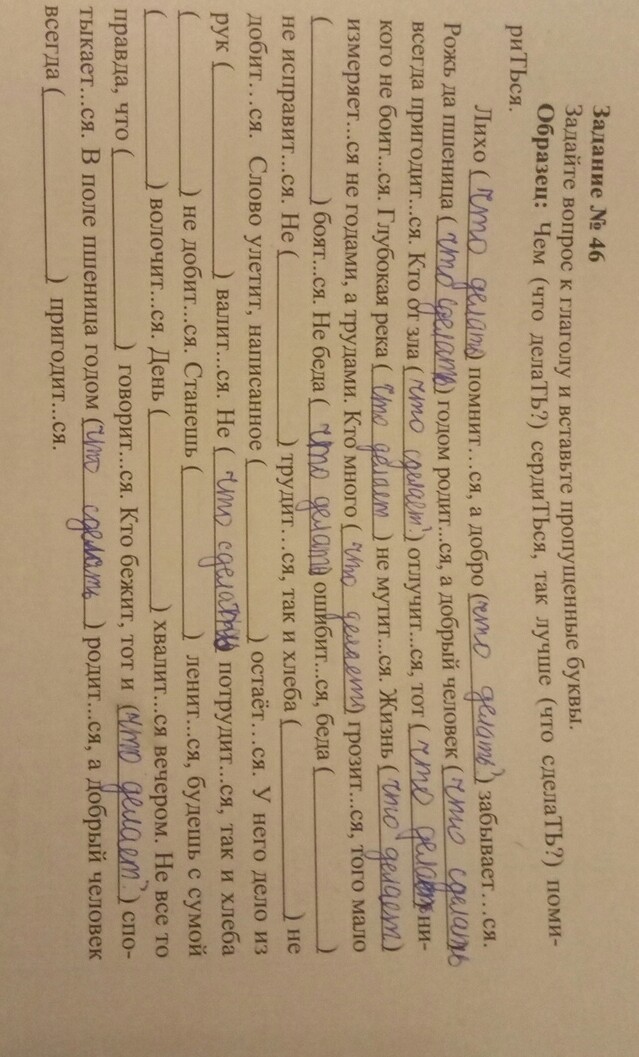 Задание № 46
Задайте вопрос к глаголу и вставьте пропущенные буквы.
Образец: Чем (что делаТЬ?) сердиТЬся, так лучше (что сделаТЬ?) поми-
риТЬся.
Лихо (что делать) помнит…ся, а добро (что делать) забывает…ся.
Рожь да пшеница (что сделать) годом родит...ся, а добрый человек (что сделать
всегда пригодит...ся. Кто от зла (что сделает) отлучит...ся, тот (что делает ни-
кого не боит...ся. Глубокая река (что делает) не мутит...ся. Жизнь (что делает)
измеряет...ся не годами, а трудами. Кто много (что делает) грозит...ся, того мало
(____________) боят...ся. Не беда (что делать) ошибит...ся, беда (____________)
не исправит...ся. Не (____________) трудит…ся, так и хлеба (____________) не
добит…ся. Слово улетит, написанное (____________) остаёт…ся. У него дело из
рук (____________) валит...ся. Не (что сделать) потрудит...ся, так и хлеба
(____________) не добит...ся. Станешь (____________) ленит...ся, будешь с сумой
(____________) волочит...ся. День (____________) хвалит...ся вечером. Не все то
правда, что (____________) говорит...ся. Кто бежит, тот и (что делает) спо-
тыкает...ся. В поле пшеница годом (что сделать) родит...ся, а добрый человек
всегда (____________) пригодит...ся.